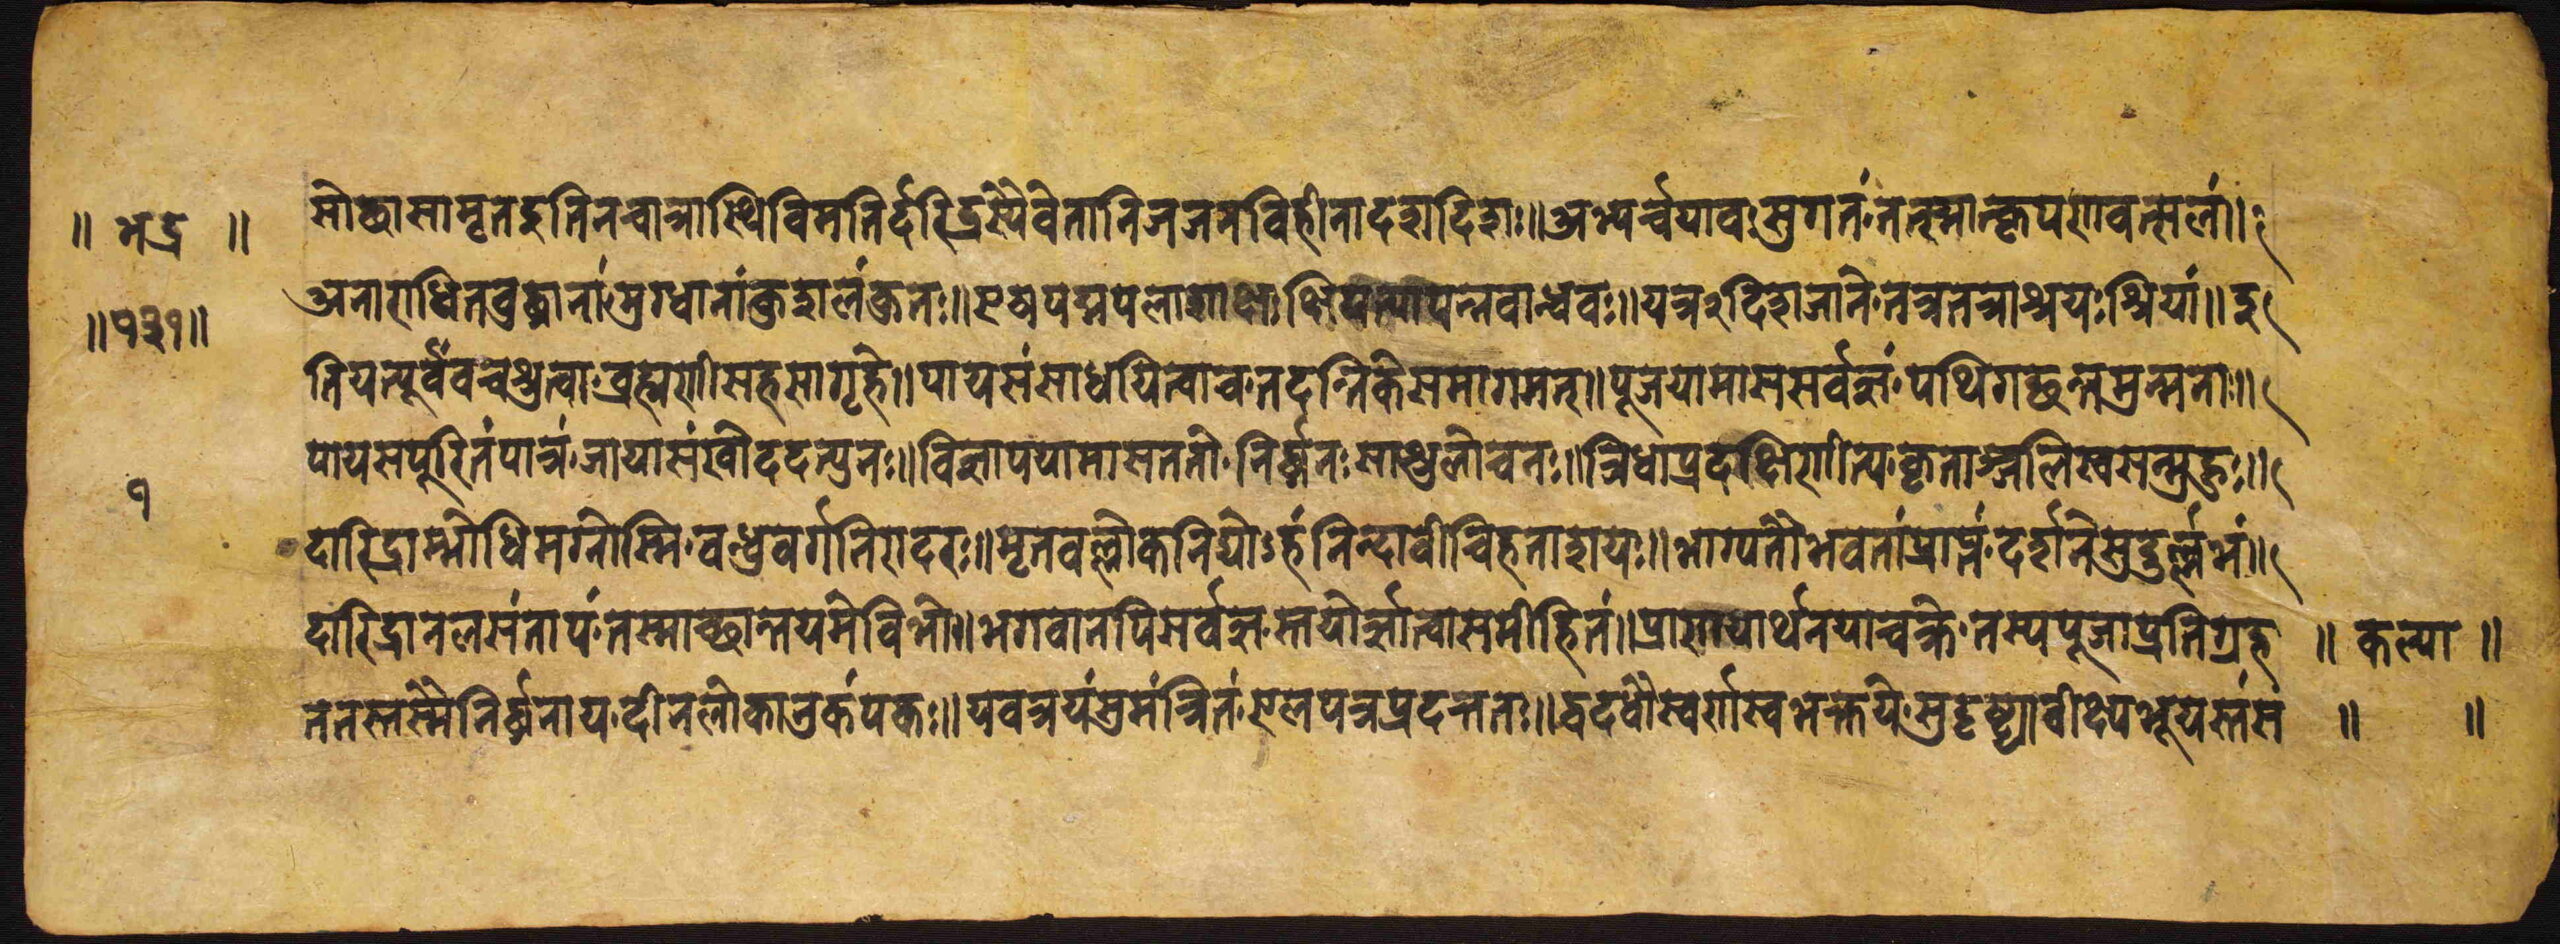 ॥ भद्र ॥
॥१३१॥
१
सोच्छासामृतदुतिनचान्नास्थिविमतिर्दरिद्रस्यैवेतानिजजनविहीनादशदिशः॥अभ्यर्च्चयावःसुगतं॰तत्तस्मात्कृपणवत्सलं॥
अनाराधितबुद्धानां॰मुग्धानांकुशलंकुतः॥ पद्मपलाशाक्षाः यत्र२दिशाजाने॰तत्रतत्राश्रयःश्रियां॥इ
तियत्पूर्वंवचश्रुत्वा॰ब्रह्मणीसहसागृहे॥पायसंसाधयित्वाच॰तदन्तिकेसमागमत्॥पूजयामाससर्वज्ञं॰पथिगच्छन्तमुन्मनाः॥
पायसपूरितंपात्रं॰जायासंखीददत्पुनः॥विज्ञापयामासततो॰निर्द्धनःसाश्रुलोचनः॥त्रिधाप्रदक्षिणीत्य॰कृताञ्जलिस्वसन्मुहुः॥
दारिद्राम्भोधिमग्नोस्मि॰बन्धुवर्गनिरादरः॥मृतवल्लोकनिद्योऽहं॰निन्दावीचिहताशयः॥भाग्यतोभवतांप्राप्तं॰दर्शनेसुदुर्ल्लभं॥
दारिद्रानलसंतापं॰तस्माच्छान्तयमेविभो॥भगवानपिसर्वज्ञ॰स्तयोर्ज्ञात्वासमीहितं॥प्रासादार्थनयाचक्रे॰तस्यपूजाप्रतिग्रह ॥ कल्या ॥
ततस्तस्मैनिर्द्धनाय॰दीनलोकानुकंपकः॥ ददधौस्वर्ण्णस्वभक्तये॰सुदृष्ट्यावीक्ष्यभूयस्तंसं ॥ ॥